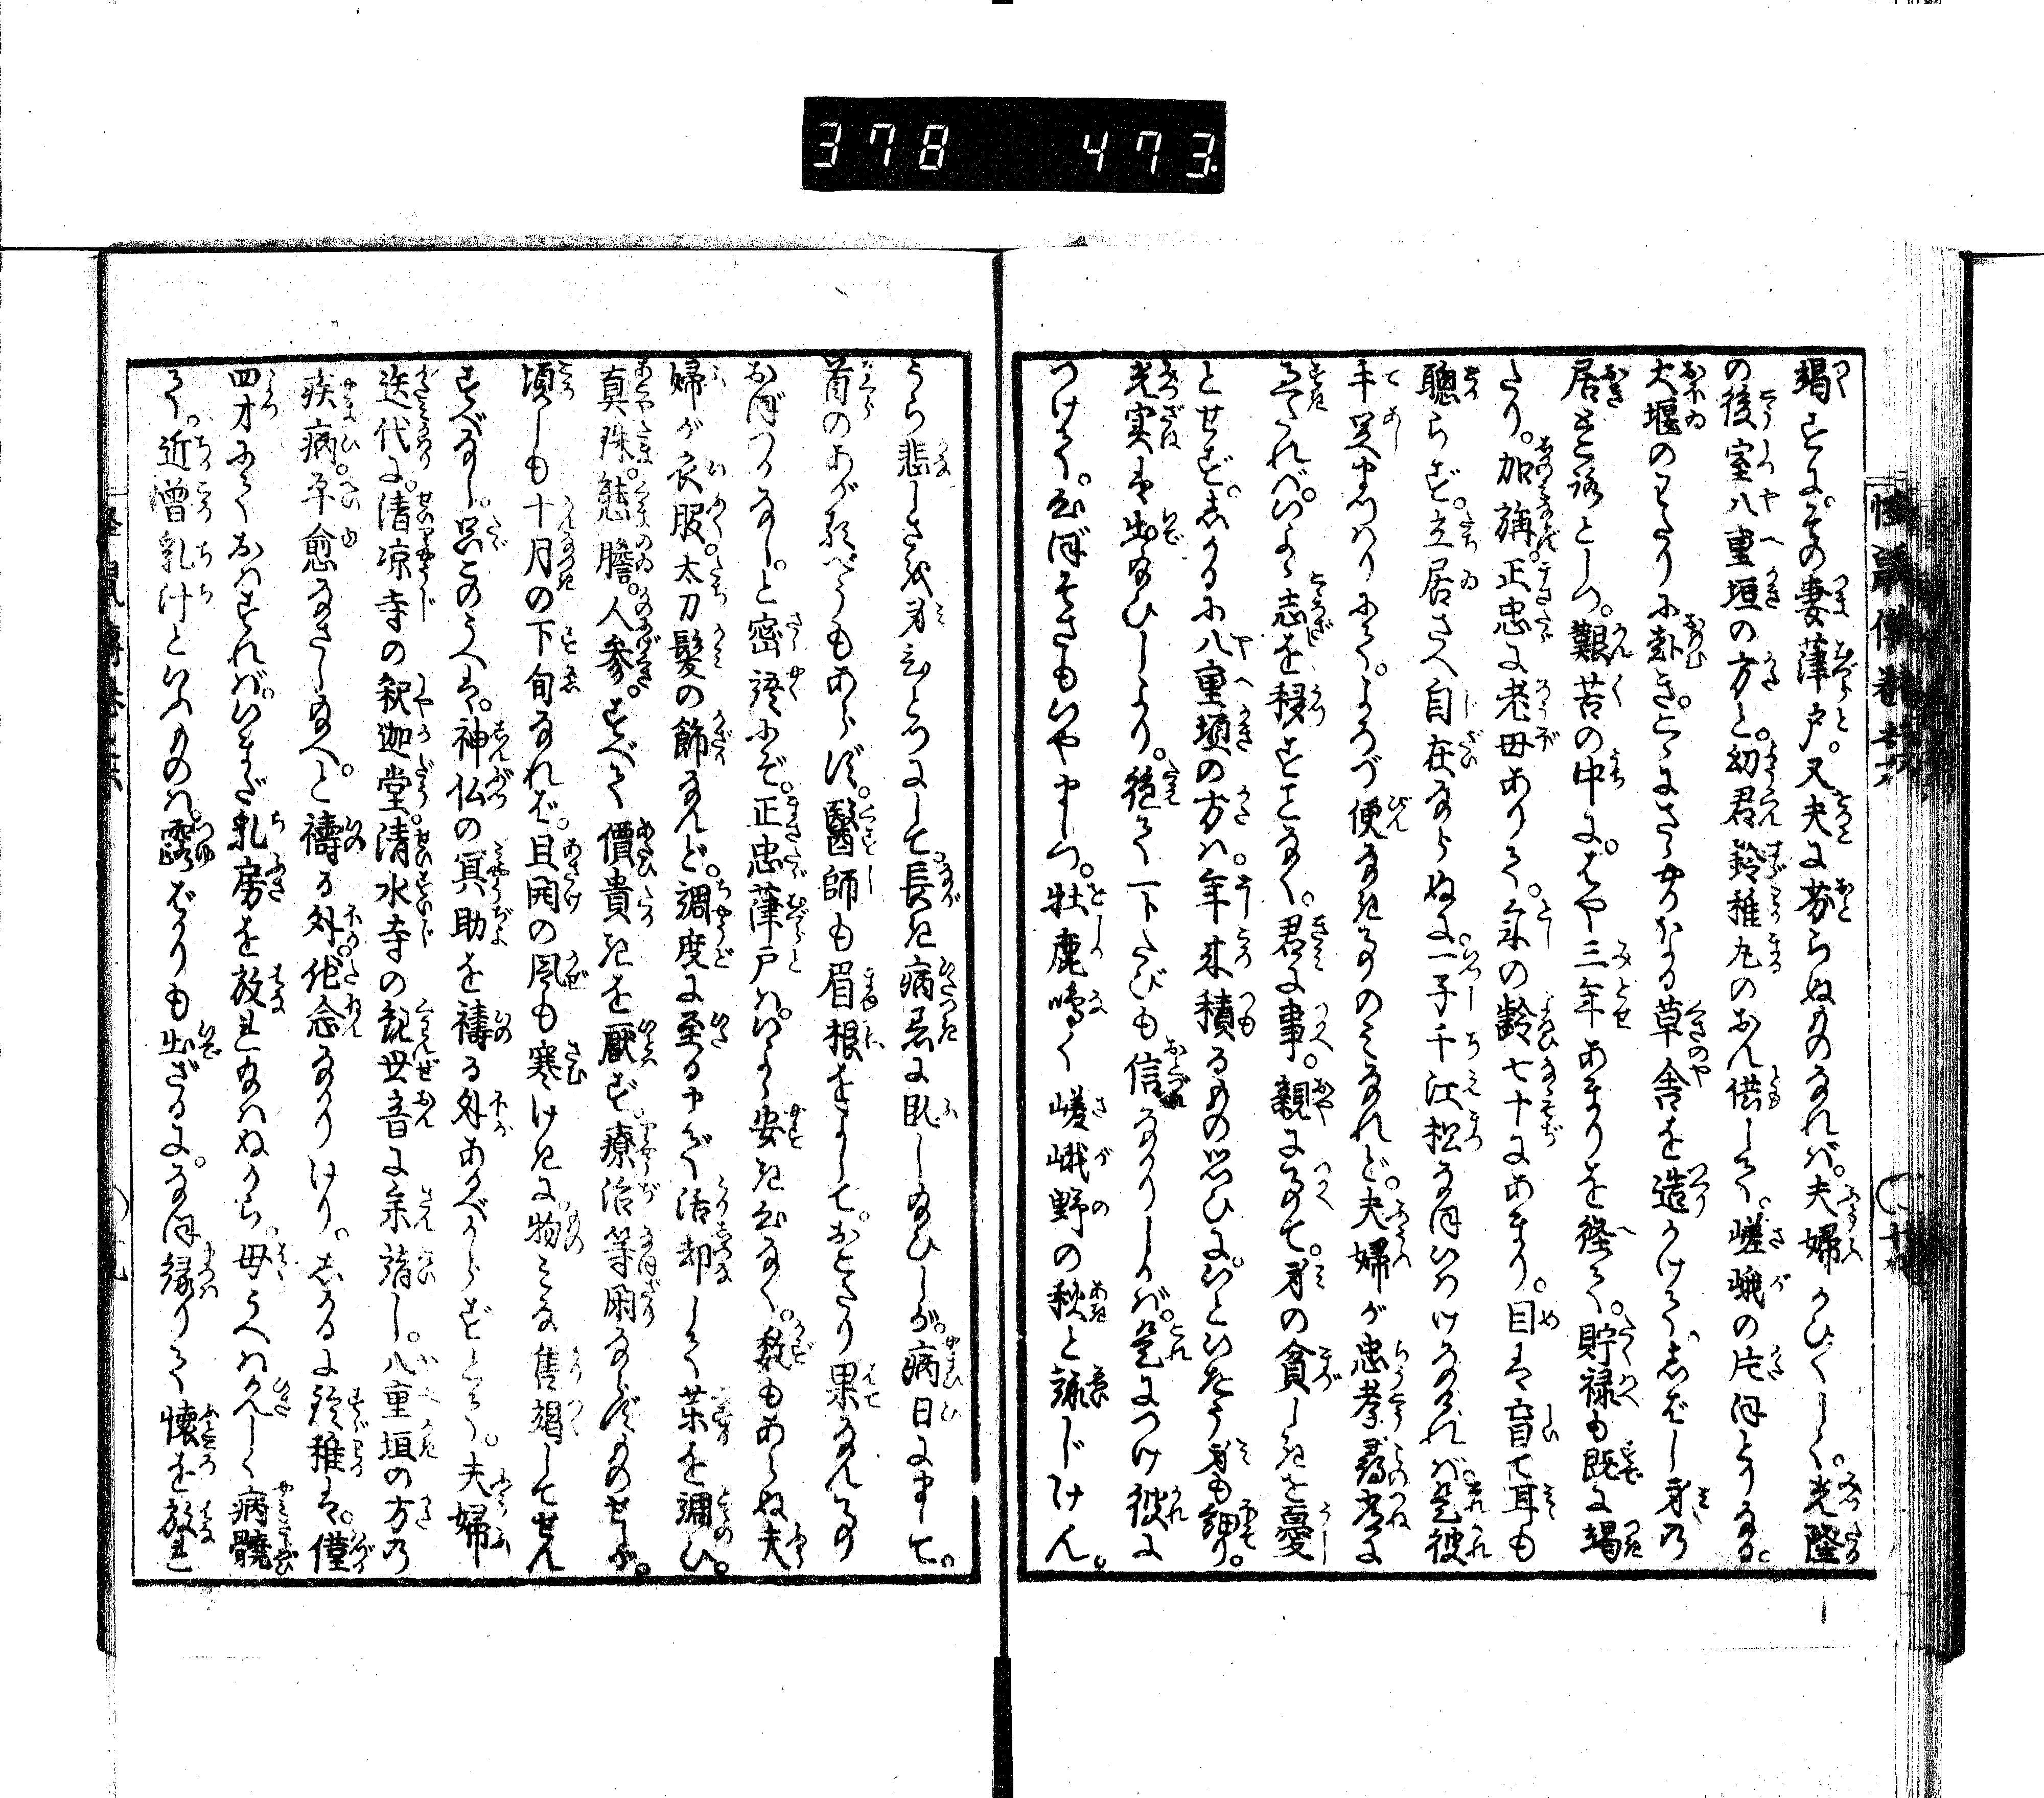 378 473
竭すに。その妻葎戸。又夫に劣らぬものなれば。夫婦かひ〳〵しく。光隆
の後室八重垣の方と。幼君鈴稚丸のおん供して。嵯峨の片ほとりなる。
大堰のわたりに赴き。こゝにさゝやかなる草舎を造りかけて。しばし身の
居き所としつ。艱苦の中に。はや三年あまりを経て。貯禄も既に竭
たり。加旃正忠に老母ありて。年の齢七十にあまり。目は盲て耳も
聴らず。立居さへ自在ならぬに。一子千江松なほいはけなければ。是彼
手足まとはりにて。よろづ便なきものみなれど。夫婦が忠孝尋常に
過たれば。いよゝ志を移すことなく。君に事。親につかへて。身の貧しきを憂
とせず。しかるに八重垣の方は。年来積るもの思ひに。いといたう身も細り。
光実は出給ひしより。絶て一トたびも信なかりしかば。是につけ彼に
つけて。心ぼそさもいやまつ。牡鹿鳴く嵯峨野の秋と詠じけん。
うら悲しきを身ひとつにして。長き病着に臥し給ひしが。病日にまして。
首のあがるべうもあらず。医師も眉根をよして。おとゝり果なんも
おぼつかなし。と密語にぞ。正忠葎戸は。いよゝ安き心なく。数もあらぬ夫
婦が衣服。太刀髪の飾なんど。調度に至るまで活却して薬を調ひ。
真珠。熊胆。人参。すべて価貴きを厭ず。療治等閑ならずものせしが。
頃しも十月の下旬なれば。旦開の風も寒けきに。物みな售竭してせん
すべなし。只このうへは。神仏の冥助を祷る外あるべからずとて。夫婦
迭代に。清凉寺の釈迦堂。清水寺の観世音に参詣し。八重垣の方の
疾病平愈なさしめ給へ。と祷る外他念なかりけり。しかるに鈴稚は。僅
四才にておはすれば。いまだ乳房を放れ給はぬから。母うへは久しく病髐
て。近曽乳汁といふものは。露ばかりも出ざるに。なほ縁りて懐を放れ